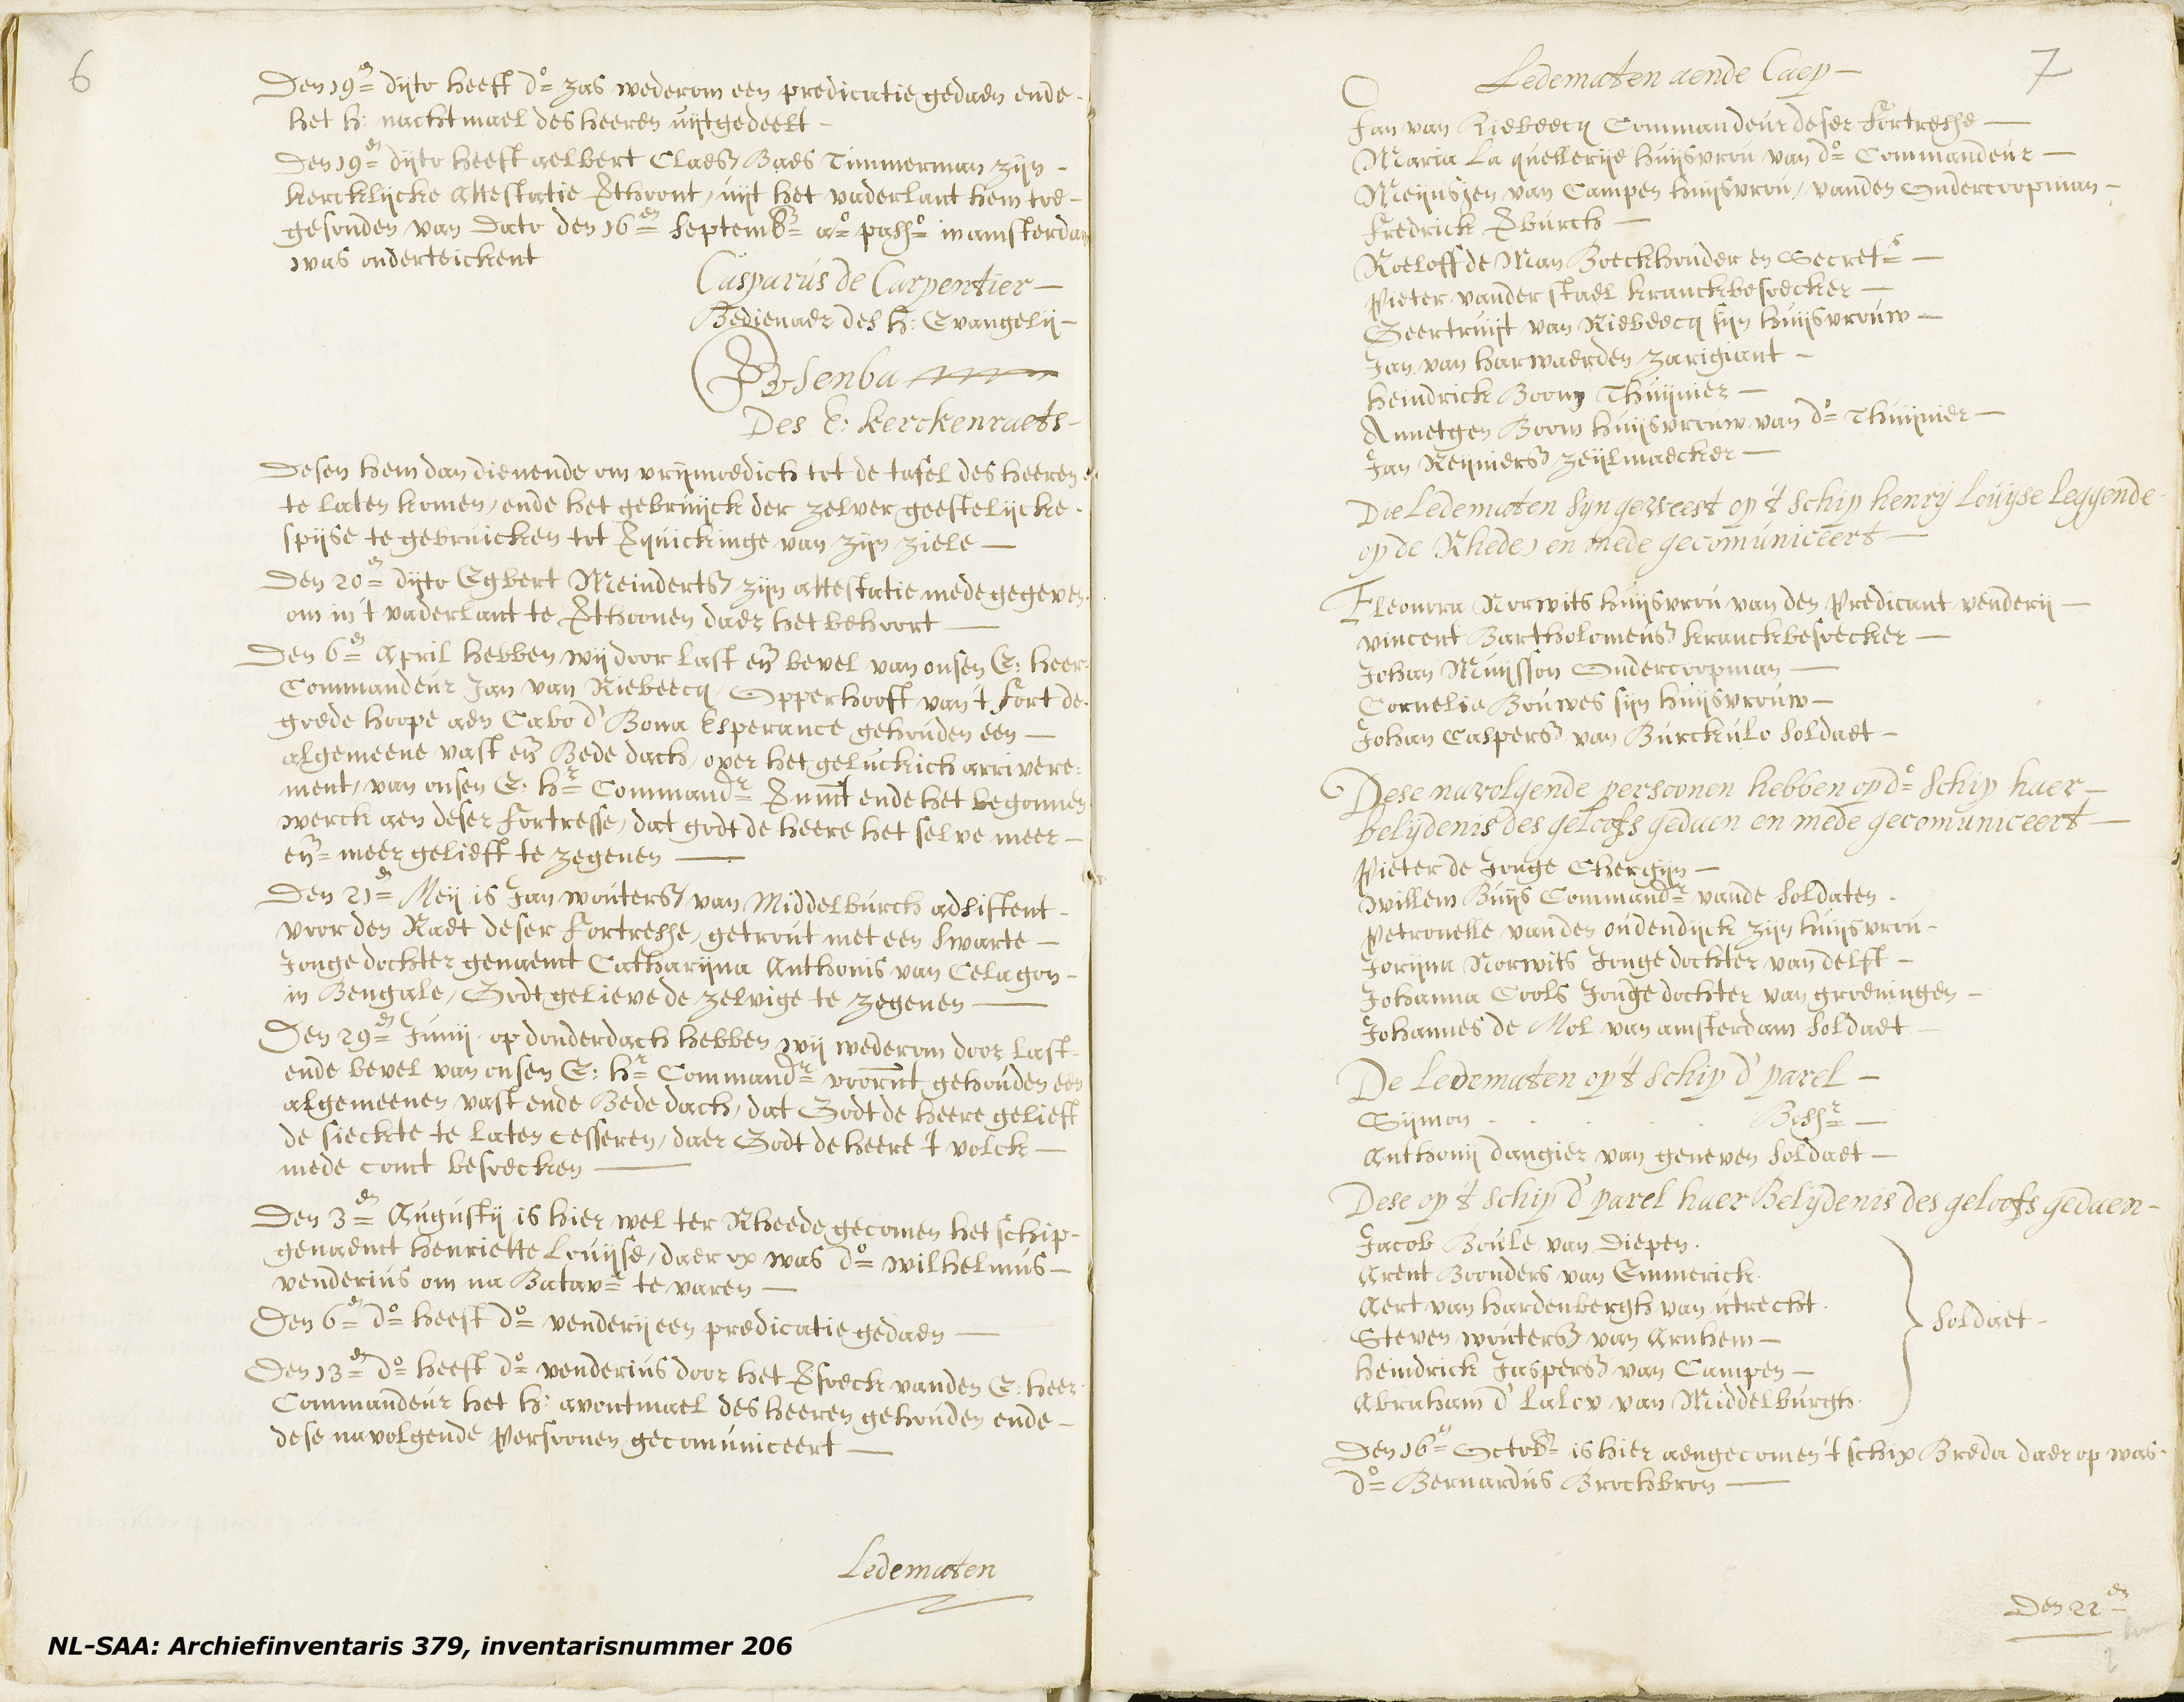 6
Den 19en dijto heeft do zas wederom een predicatie gedaen ende
het h: nachtmael des heeren uijtgedeelt
Den 19en dijto heeft aelbert Claesz Baes Timmerman zijn
kercklijcke attestatie verthoont, uijt het vaderlant hem toe
gesonden van dato den 16en Septembr ao passo in amsterdam
was onderteickent
Casparús de Carpentier
Bedienaer des h: Evangelij
Des E: kerckenraets
Desen hem dan dienende om vrijmoedich tot de tafel des heeren
te laten komen, ende het gebruijck der zelver geestelijcke
spijse te gebruicken tot verquickinge van zijn ziele
Den 20en dijto Egbert Meindertsz zijn attestatie mede gegeven
om in 't vaderlant te verthoonen daer het behoort
Den 6en April hebben wij door last en bevel van onsen E: heer
Commandeúr Jan van Riebeecq Opperhooft van 't fort de
goede hoope aen Cabo d' Bona Esperance gehoúden een
algemeene vast en Bede dach, over het geluckich arrivere:
ment, van onsen E: hr Commandr vernmt ende het begonnen
werck aen deser fortresse, dat godt de heere het selve meer
en meer gelieft te zegenen
Den 21en Meij is Jan woútersz van Middelbúrch adsistent
voor den Raet deser fortresse, getroút met een swarte
Jonge dochter genaemt Catharijna Anthonis van Celagon
in Bengale, Godt gelieve de zelvige te zegenen
Den 29en Junij op donderdach hebben wij wederom door last
ende bevel van onsen E: hr Commandr voornt gehoúden een
algemeenen vast ende Bede dach, dat Godt de heere gelieft
de sieckte te laten cesseren, daer Godt de heere 't volck
mede comt besoecken
Den 3en Augústij is hier wel ter Rheede gecomen het schip
genaemt henriette Loúijse, daer op was do wilhelmús
venderiús om na Batavr te varen
Den 6en do heeft do venderij een predicatie gedaen
Den 13en do heeft do venderiús door het versoeck vanden E: heer
Commandeúr het h: avontmael des heeren gehoúden ende
dese navolgende Persoonen gecomúniceert
Ledematen
7
Ledematen aende Caep
Jan van Riebeecq Commandeúr deser fortresse
Maria La quellerije húijsvroú van do Commandeúr
Meijnsjen van Campen húijsvroú, vanden Ondercoopman
fredrick verbúrch
Roeloff de Man Boeckhoúder en Secrets
Pieter vander stael kranckbesoecker
Geertruijt van Riebeecq sijn húijsvroúw
Jan van harwaerden zarigiant
heindrick Boom Thúijnier
Annetgen Boom húijsvroúw van do Thúijnier
Jan Reijniersz zeijlmaecker
Die Ledematen sijn geweest op 't schip henrij Loúijse leggende
op de Rhede, en mede gecomúniceert
Eleonora Norwits húijsvroú van den Predicant venderij
vincent Bartholomeusz kranckbesoecker
Johan Múijsson Ondercoopman
Cornelia Boúwes sijn húijsvroúw
Johan Caspersz van Búrckúlo Soldaet
Dese navolgende persoonen hebben op do schip haer
belijdenis des geloofs gedaen en mede gecomuniceert
Pieter de Jonge Chergijn
willem Búijs Commandr vande Soldaten
Petronelle vanden oúdendijck zijn húijsvroú
Jorijna Norwits Jonge dochter van delft
Johanna Cools Jonge dochter van groeningen
Johannes de Mol van amsterdam Soldaet
De Ledematen op 't schip d' parel
Sijmon . . . . . Bossr
Anthonij dangier van geneven Soldaet
Dese op 't schip d' parel haer Belijdenis des geloofs gedaen
Jacob Boúle van Diepen
Arent Boonders van Emmerick
Aert van hardenbergh van útrecht
Steven woútersz van Arnhem
heindrick Jaspersz van Campen
Abraham d' Lalov van Middelbúrgh
Soldaet
Den 16en Octobr is hier aengecomen 't schip Breda daer op was
do Bernardús Brochbron
Den 22en
NL-SAA: Archiefinventaris 379, inventarisnummer 206